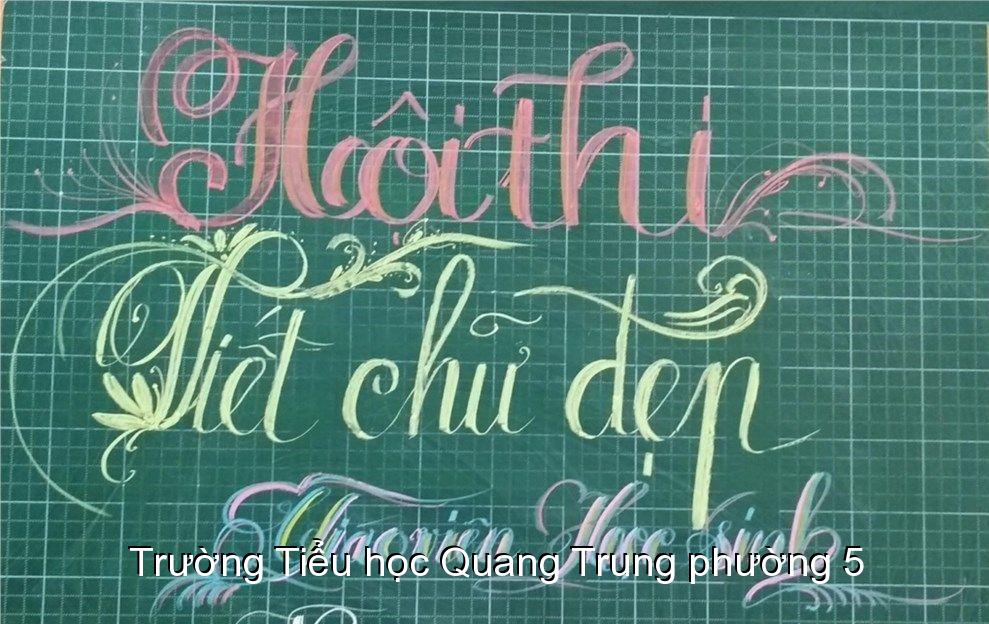 Hội thi
Viết chữ đẹp
Giáo viên Học sinh
Trường Tiểu học Quang Trung phường 5